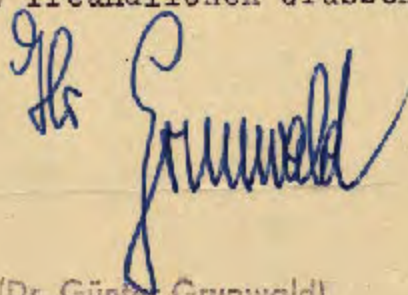 freundlichen Grüßen
Ihr Grunwald
(Dr. Günter Grunwald)